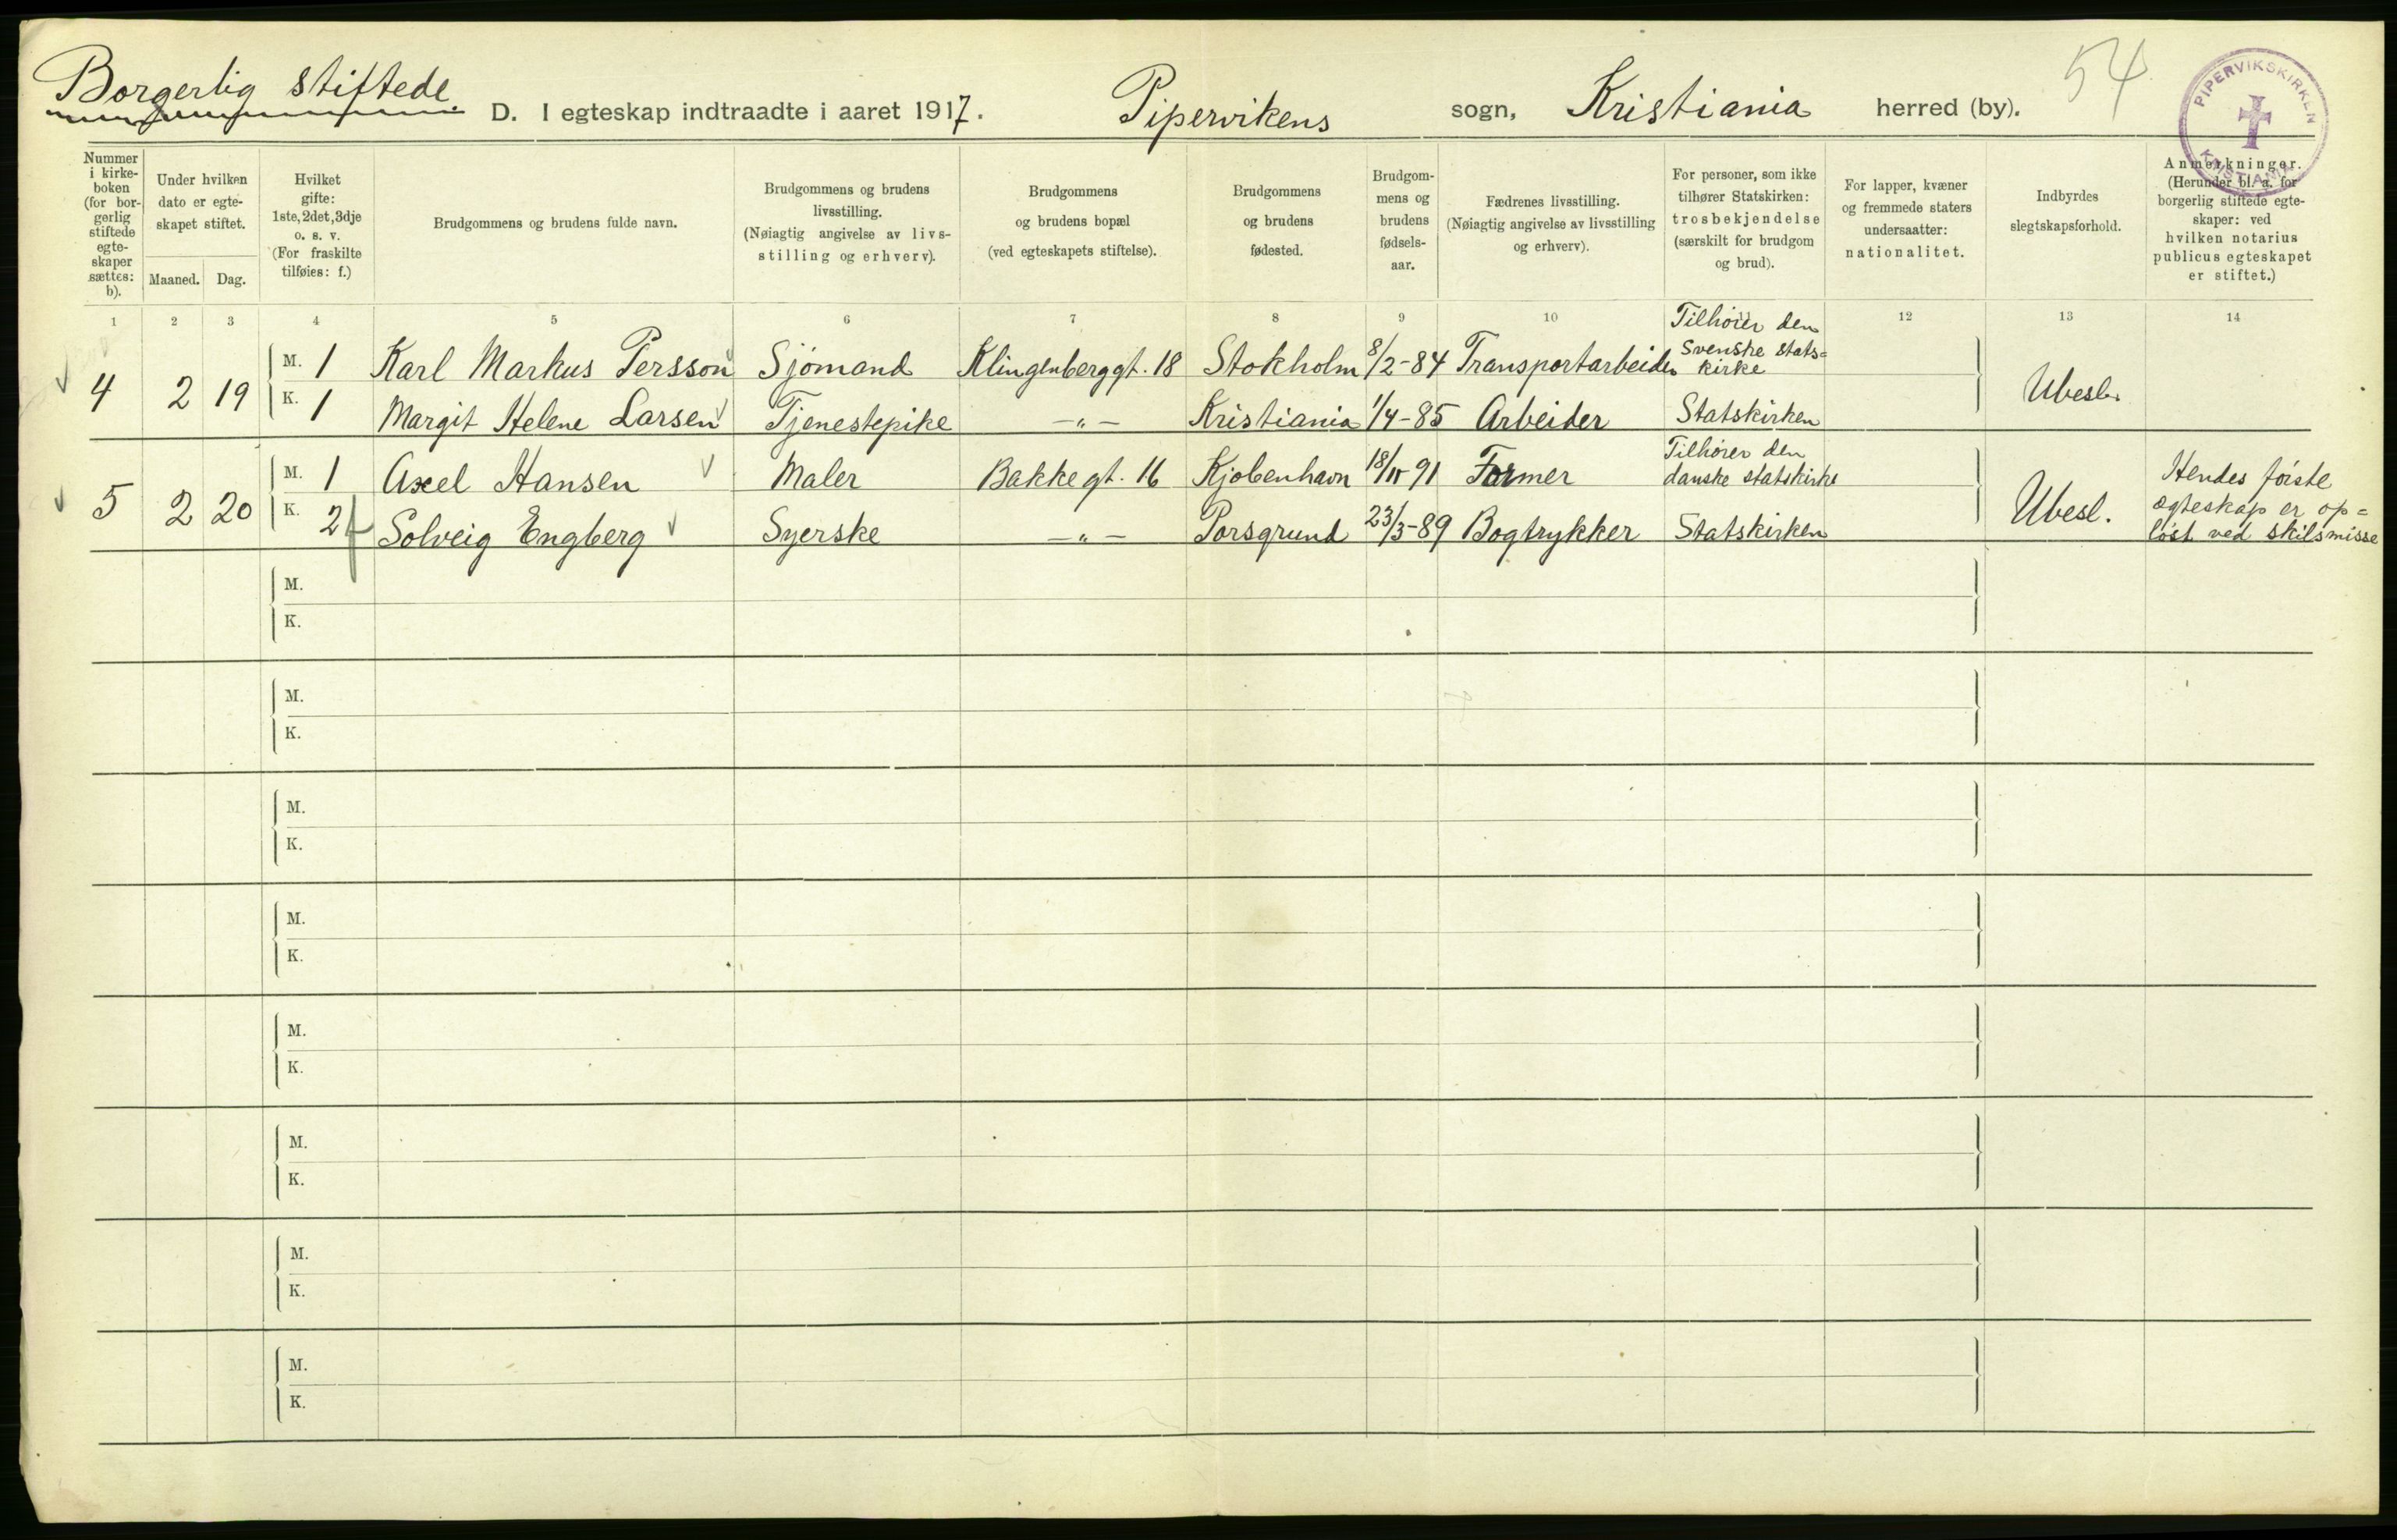 Borgerlig stiftede
D. I egteskap indtraadte i aaret 1917. Pipervikens sogn, Kristiania herred (by).
54
PIPERVIKSKIRKEN
KRISTIANIA
Nummer
i kirke-
boken
(for bor-
gerlig
stiftede
egte-
skaper
sættes:
b).
Under hvilken
dato er egte-
skapet stiftet.
Maaned. Dag.
Hvilket
gifte:
1ste, 2det, 3dje
o. s. v.
(For fraskilte
tilføies: f.)
Brudgommens og brudens fulde navn.
Brudgommens og brudens
livsstilling.
(Nøiagtig angivelse av livs-
stilling og erhverv).
Brudgommens
og brudens bopæl
(ved egteskapets stiftelse).
Brudgommens
og brudens
fødested.
Brudgom-
mens og
brudens
fødsels-
aar.
Fædrenes livsstilling.
(Nøiagtig angivelse av livsstilling
og erhverv).
For personer, som ikke
tilhører Statskirken:
trosbekjendelse
(særskilt for brudgom
og brud).
For lapper, kvæner
og fremmede staters
undersaatter:
nationalitet.
Indbyrdes
slegtskapsforhold.
Anmerkninger.
(Herunder bl. a. for
borgerlig stiftede egte-
skaper: ved
hvilken notarius
publicus egteskapet
er stiftet.)
1 2 3 4 5 6 7 8 9 10 11 12 13 14
4 2 19
M. 1 Karl Markus Persson Sjömand Klingenberggt. 18 Stokholm 8/2-84 Transportarbeider
Tilhörer den
Svenske stats=
kirke
K. 1 Margit Helene Larsen Tjenestepike -"- Kristiania 1/4-85 Arbeider Statskirken
Ubesl.
5 2 20
M. 1 Axel Hansen Maler Bakkegt. 16 Kjobenhavn 18/11 91 Former
Tilhører den
danske statskirke
K. 2f Solveig Engberg Syerske -"- Porsgrund 23/3-89 Bogtrykker Statskirken
Ubesl.
Hendes förste
egteskap er op=
löst ved skilsmisse
M.
K.
M.
K.
M.
K.
M.
K.
M.
K.
M.
K.
M.
K.
M.
K.